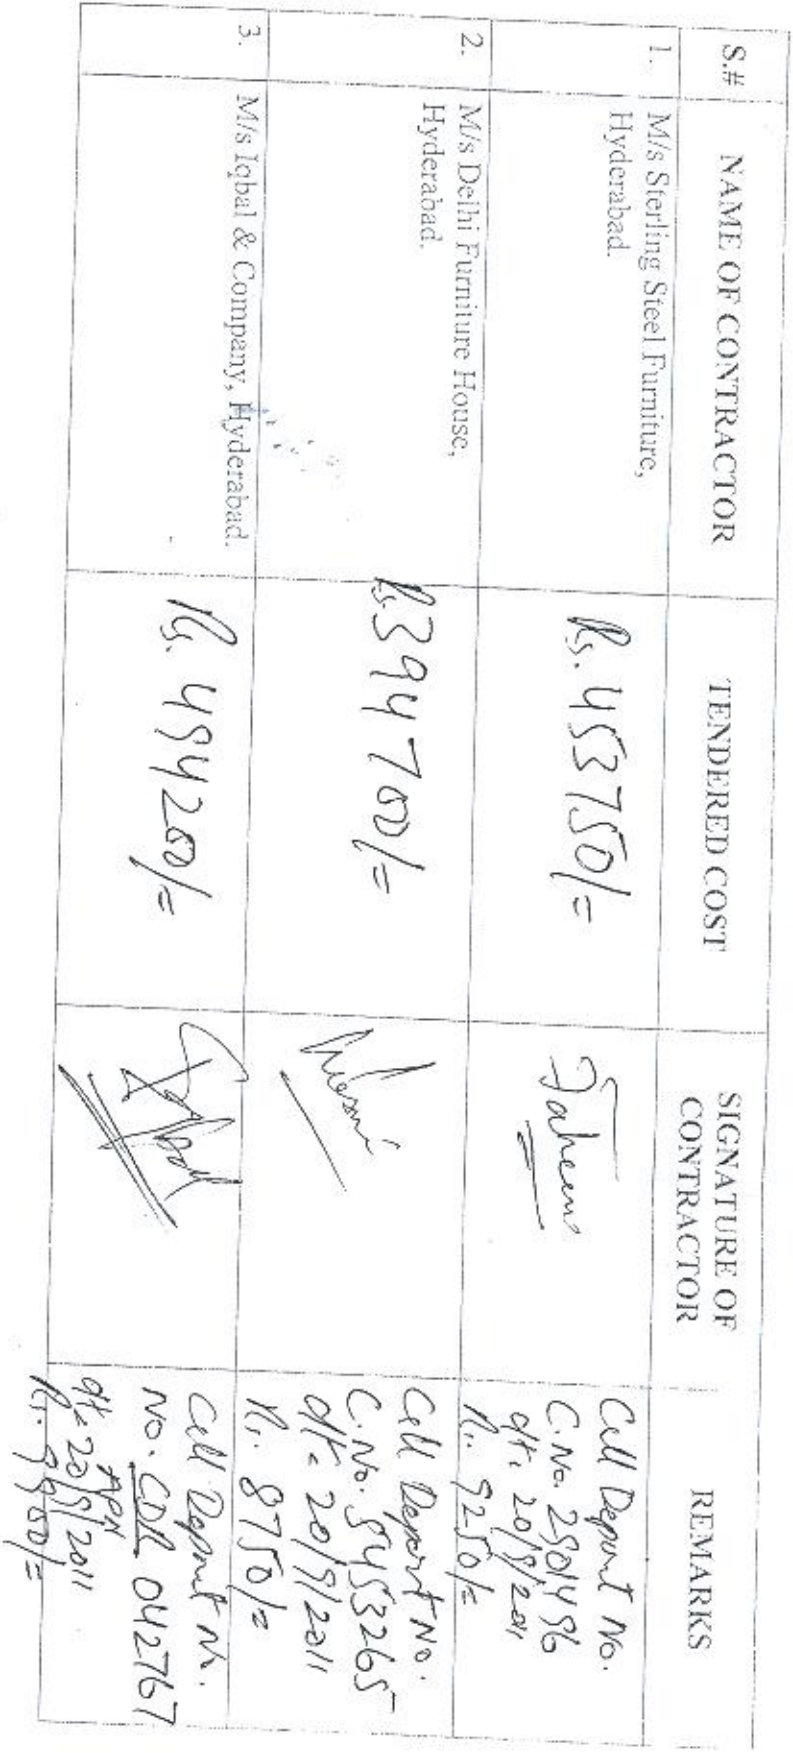 S.# NAME OF CONTRACTOR TENDERED COST SIGNATURE OF CONTRACTOR REMARKS
1. M/s Sterling Steel Furniture,
Hyderabad.
Rs. 453750/=
Faheem
Call Deposit No.
C.No. 2901496
dt. 20/9/2011
Rs. 9250/=
2. M/s Delhi Furniture House,
Hyderabad.
Rs 394700/=
Call Deposit No.
C.No. 5453265
dt. 20/9/2011
Rs. 8750/=
3. M/s Iqbal & Company, Hyderabad.
Rs. 494200/=
Call Deposit No.
No. CDR 042767
APN
dt. 20/9/2011
Rs. 9900/=